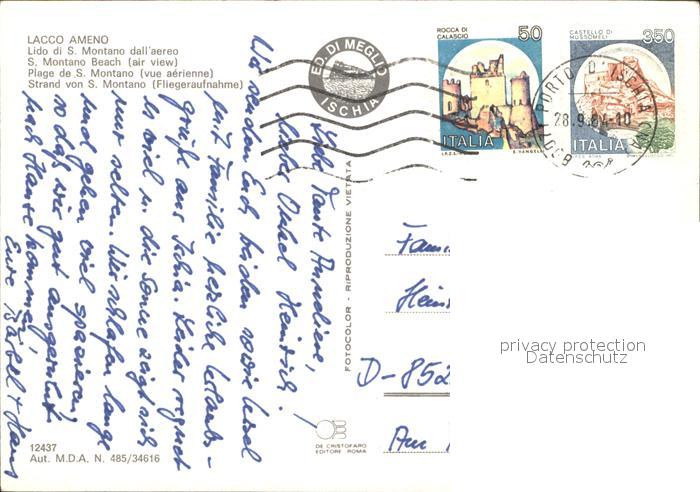 LACCO AMENO
Lido di S. Montano dall'aereo
S. Montano Beach (air view)
Plage de S. Montano (vue aérienne)
Strand von S. Montano (Fliegeraufnahme)
ED. DI MEGLIO
ISCHIA
ROCCA DI CALASCIO
50
ITALIA
I.P.Z.S.
E. VANGELLI
CASTELLO DI MUSSOMELI
350
ITALIA
PORTO D'ISCHIA
28.9.84-10
Liebe Tante
lieber Onkel Heinrich!
Wir senden Euch beiden sowie Liesel
mit Familie herzliche Urlaubs-
grüße aus Ischia. Leider regnet
es viel u. die Sonne zeigt sich
nur selten. Wir schlafen lange
und gehen viel spazieren,
so daß wir gut ausgeruht
nach Hause kommen.
Eure Bärbel + Hans
FOTOCOLOR - RIPRODUZIONE VIETATA
Fam
Hein
D-852
Am
privacy protection
Datenschutz
DE CRISTOFARO
EDITORE ROMA
12437
Aut. M.D.A. N. 485/34616